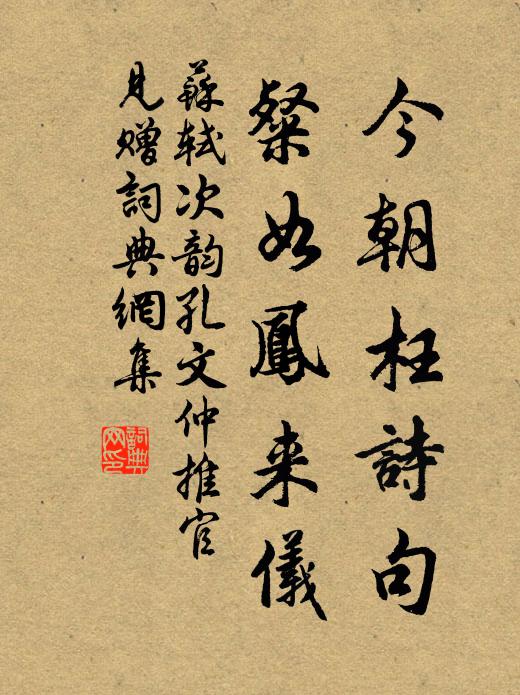 今朝枉詩句
粲如鳳来儀
蘇軾次韵孔文仲推官
見贈詞典網集
詞典
网印